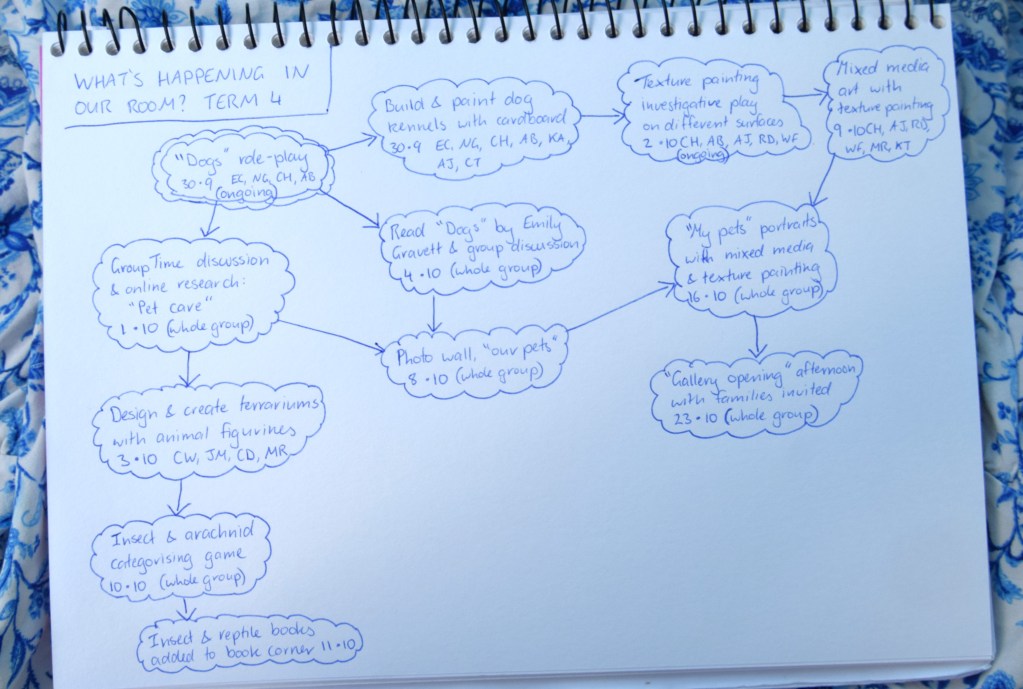 WHAT'S HAPPENING IN
OUR ROOM? TERM 4
"Dogs" role-play
30·9 EC, NG, CH, AB
(ongoing)
Build & paint dog
kennels with cardboard
30·9 EC, NG, CH, AB, KA,
AJ, CT
Texture painting
investigative play
on different surfaces
2·10 CH, AB, AJ, RD, WF
(ongoing)
Mixed media
art with
texture painting
9·10 CH, AJ, RD,
WF, MR, KT
Read "Dogs" by Emily
Gravett & group discussion
4·10 (whole group)
"My pets" portraits
with mixed media
& texture painting
16·10 (whole group)
Group Time discussion
& online research:
"Pet care"
1·10 (whole group)
Photo wall, "our pets"
8·10 (whole group)
"Gallery opening" afternoon
with families invited
23·10 (whole group)
Design & create terrariums
with animal figurines
3·10 CW, JM, CD, MR
Insect & arachnid
categorising game
10·10 (whole group)
Insect & reptile books
added to book corner 11·10